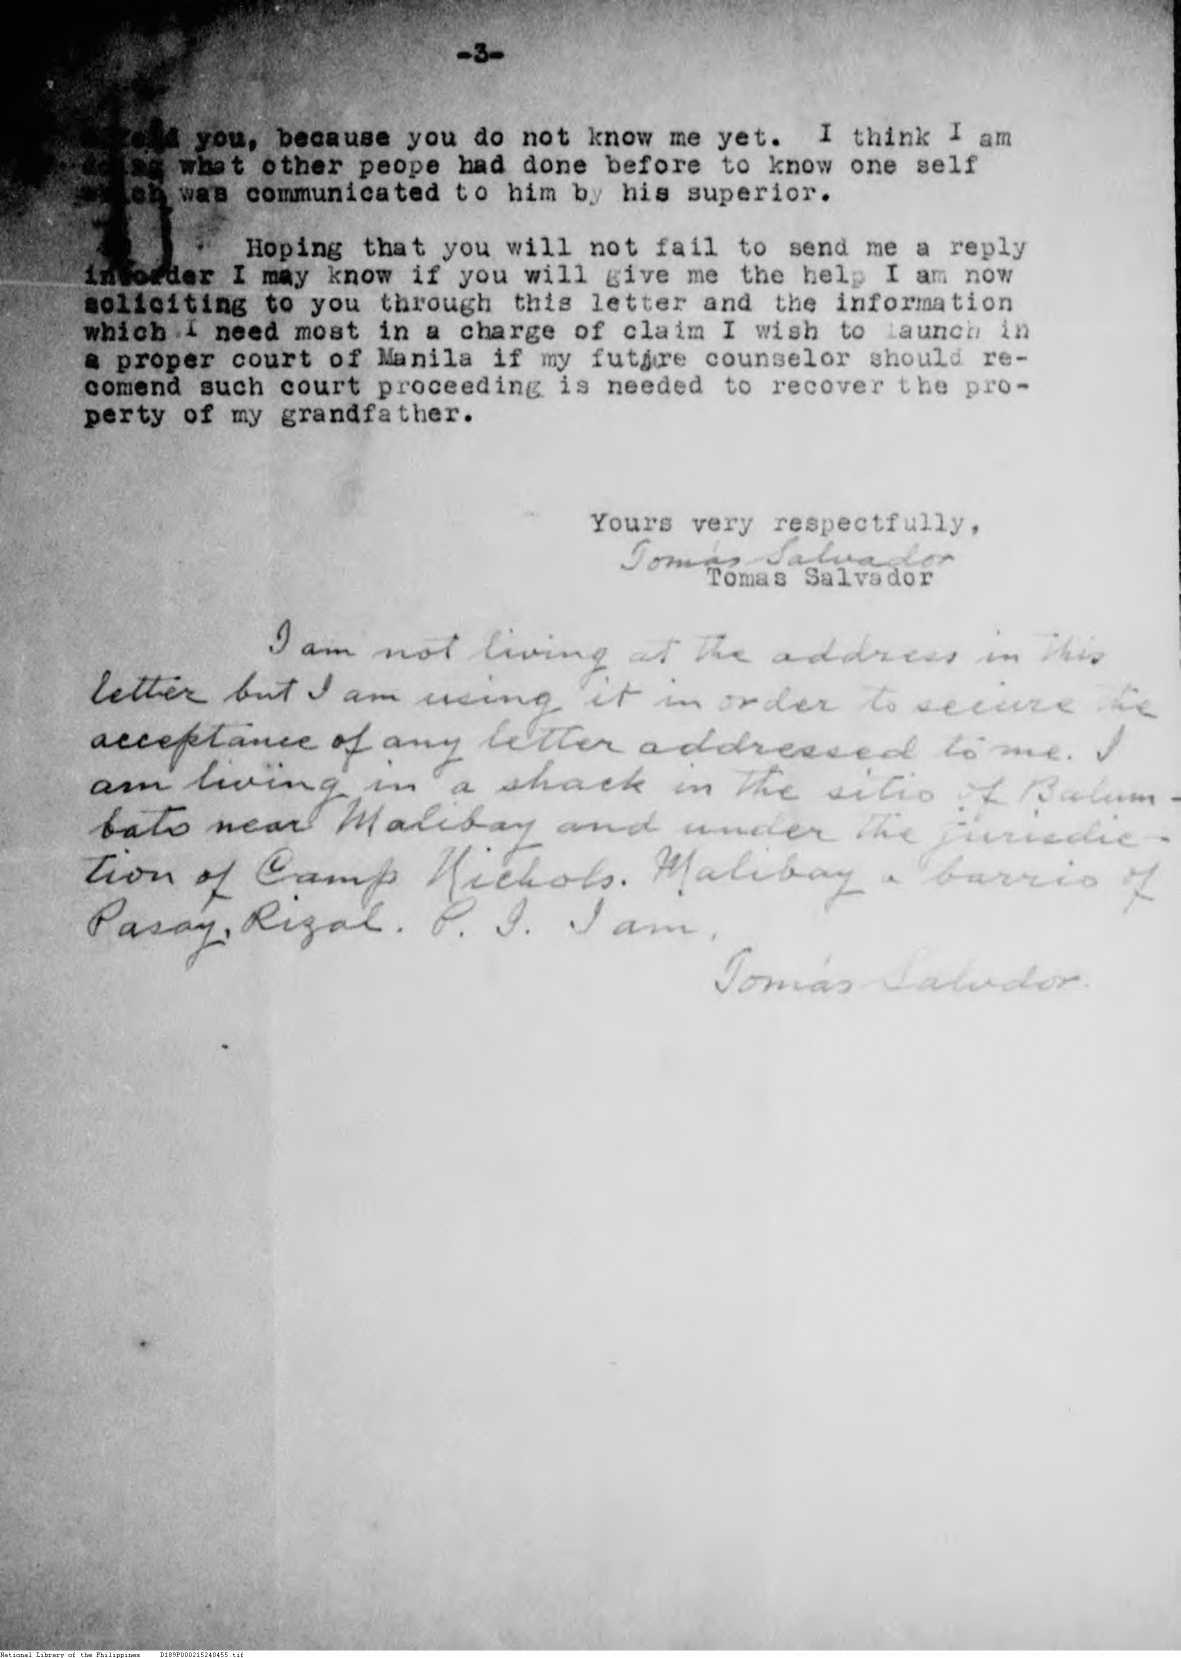 -3-
you, because you do not know me yet. I think I am
what other peope had done before to know one self
was communicated to him by his superior.
Hoping that you will not fail to send me a reply
in order I may know if you will give me the help I am now
soliciting to you through this letter and the information
which I need most in a charge of claim I wish to launch in
a proper court of Manila if my future counselor should re-
comend such court proceeding is needed to recover the pro-
perty of my grandfather.
Yours very respectfully,
Tomás Salvador
Tomas Salvador
I am not living at the address in this
letter but I am using it in order to secure the
acceptance of any letter addressed to me. I
am living in a shack in the sitio of Balum-
bato near Malibay and under the jurisdic-
tion of Camp Nichols. Malibay a barrio of
Pasay, Rizal. P. I. I am,
Tomás Salvdor.
National Library of the Philippines D189P000215240455.tif